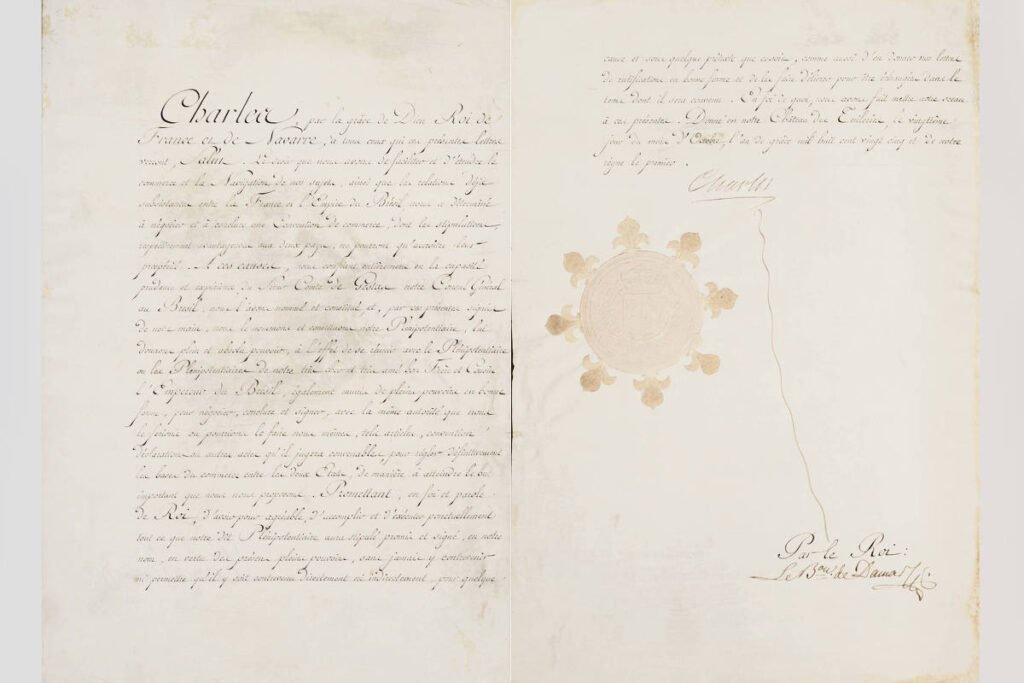 Charles, par la grâce de Dieu Roi de
France et de Navarre, à tous ceux qui ces présentes lettres
verront, Salut. Le désir que nous avons de faciliter et d'étendre le
commerce et la Navigation de nos sujets, ainsi que les relations déjà
subsistantes entre la France et l'Empire du Brésil nous a déterminé
à négocier et à conclure une Convention de commerce, dont les stipulations
également avantageuses aux deux pays, ne pourront qu'accroître leur
prospérité. A ces causes, nous confiant entièrement en la capacité
prudence et expérience du Sieur Comte de Gestas notre Consul Général
au Brésil, nous l'avons nommé et constitué et, par ces présentes signées
de notre main, nous le nommons et constituons notre Plénipotentiaire, lui
donnons plein et absolu pouvoir, à l'effet de se réunir avec le Plénipotentiaire
ou les Plénipotentiaires de notre très cher et très amé bon Frère et Cousin
l'Empereur du Brésil, également munis de pleins pouvoirs en bonne
forme, pour négocier, conclure et signer, avec la même autorité que nous
le ferions ou pourrions le faire nous mêmes, tels articles, convention
déclaration ou autres actes qu'il jugera convenable, pour régler définitivement
les bases du commerce entre les deux Etats, de manière à atteindre le but
important que nous nous proposons. Promettant, en foi et parole
de Roi, d'avoir pour agréable, d'accomplir et d'exécuter ponctuellement
tout ce que notre dit Plénipotentiaire aura stipulé, promis et signé, en notre
nom, en vertu des présens pleins pouvoirs, sans jamais y contrevenir
ni permettre qu'il y soit contrevenu directement ni indirectement, pour quelque
cause et sous quelque prétexte que ce soit, comme aussi d'en donner nos lettres
de ratification en bonne forme et de les faire délivrer pour être échangées dans le
tems dont il sera convenu. En foi de quoi, nous avons fait mettre notre sceau
à ces présentes. Donné en notre Château des Tuileries, le vingtième
jour du mois d'Octobre, l'an de grâce mil huit cent vingt cinq et de notre
règne le premier.
Charles
Par le Roi:
Le Bon. de Damas